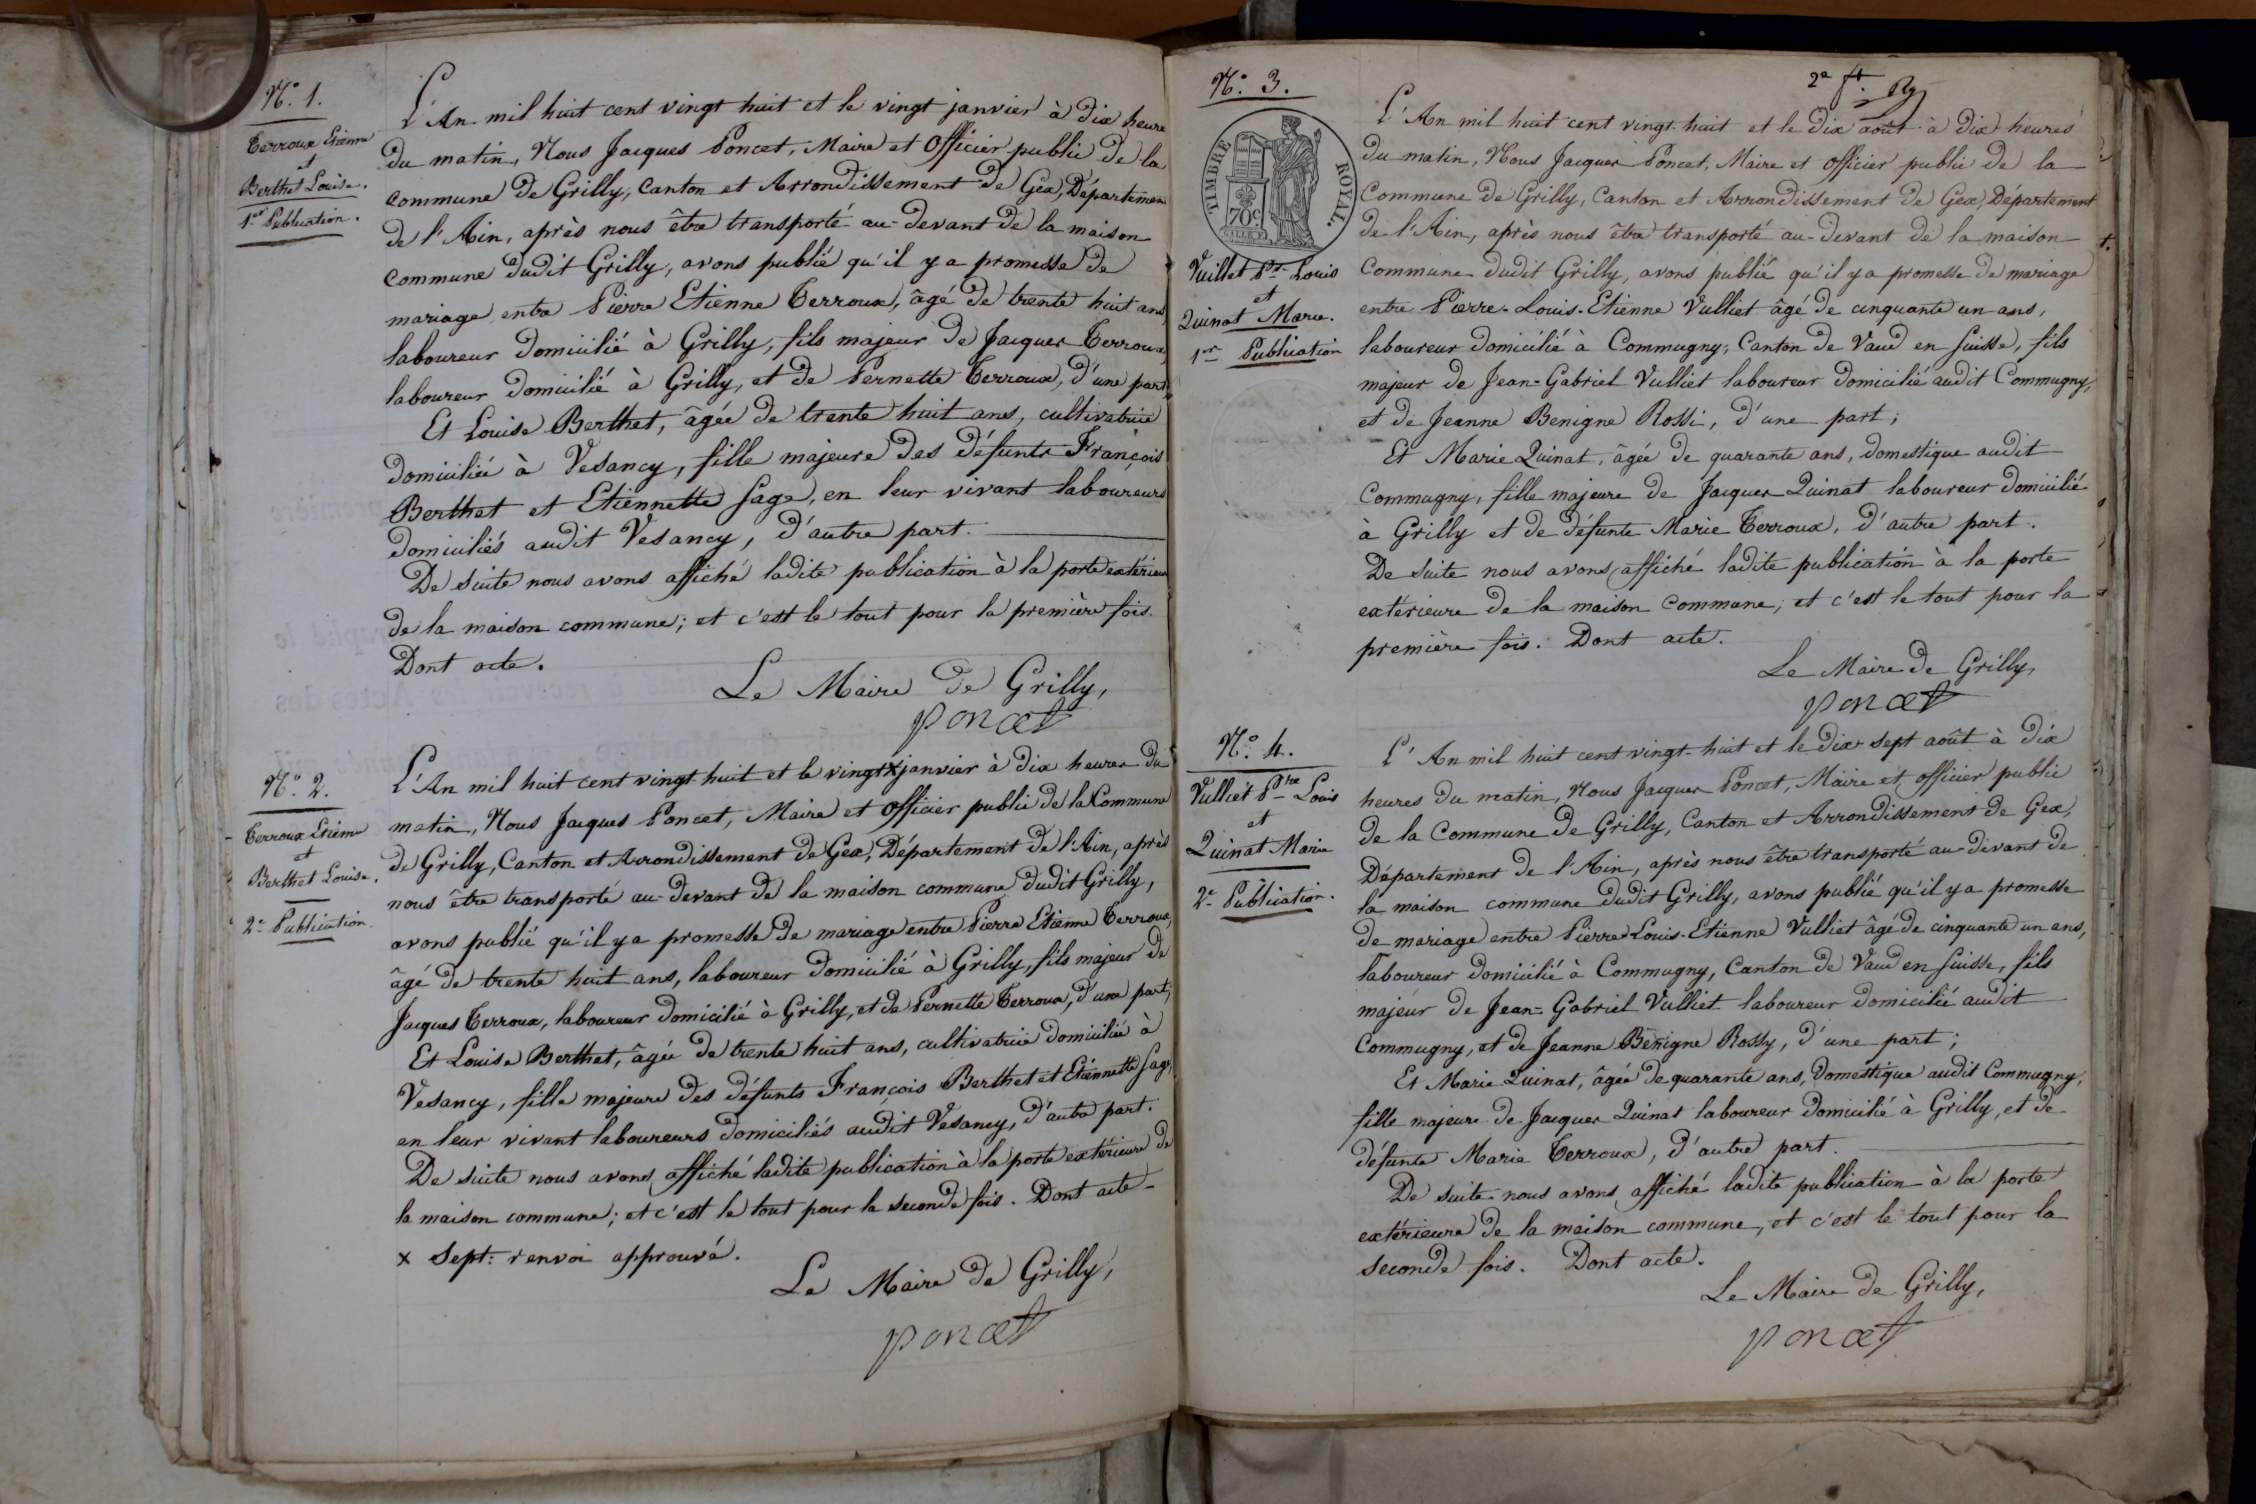 N.° 1.
Terroux Etienne
et
Berthet Louise.
1.re Publication.
L'An mil huit cent vingt huit et le vingt janvier à dix heure
du matin, Nous Jacques Poncet, Maire et Officier public de la
commune de Grilly, Canton et Arrondissement de Gex, Départemen
de l'Ain, après nous être transporté au-devant de la maison
commune dudit Grilly, avons publié qu'il y a promesse de
mariage entre Pierre Etienne Terroux, âgé de trente huit ans,
laboureur domicilié à Grilly, fils majeur de Jacques Terroux,
laboureur domicilié à Grilly, et de Pernette Terroux, d'une part,
Et Louise Berthet, âgée de trente huit ans, cultivatrice
domiciliée à Vesancy, fille majeure des défunts François
Berthet et Etiennette Sage, en leur vivant laboureurs
domiciliés audit Vesancy, d'autre part.
De suite nous avons affiché ladite publication à la porte extérieu
de la maison commune; et c'est le tout pour la première fois.
Dont acte.
Le Maire de Grilly,
Poncet
N.° 2.
Terroux Etienne
et
Berthet Louise.
2.e Publication.
L'An mil huit cent vingt-huit et le vingt x janvier à dix heures du
matin, Nous Jacques Poncet, Maire et Officier public de la Commune
de Grilly, Canton et Arrondissement de Gex, Département de l'Ain, après
nous être transporté au-devant de la maison commune dudit Grilly,
avons publié qu'il y a promesse de mariage entre Pierre Etienne Terroux,
âgé de trente huit ans, laboureur domicilié à Grilly, fils majeur de
Jacques Terroux, laboureur domicilié à Grilly, et de Pernette Terroux, d'une part,
Et Louise Berthet, âgée de trente huit ans, cultivatrice domiciliée à
Vesancy, fille majeure des défunts François Berthet et Etiennette Sage,
en leur vivant laboureurs domiciliés audit Vesancy, d'autre part.
De suite nous avons affiché ladite publication à la porte extérieure de
la maison commune; et c'est le tout pour la seconde fois. Dont acte
x sept: renvoi approuvé.
Le Maire de Grilly,
Poncet
2e ft.
N.° 3.
TIMBRE ROYAL.
70c
Vuillet P.re Louis
et
Quinat Marie.
1.re Publication
L'An mil huit cent vingt-huit et le dix août à dix heures
du matin, Nous Jacques Poncet, Maire et officier public de la
Commune de Grilly, Canton et Arrondissement de Gex, Département
de l'Ain, après nous être transporté au-devant de la maison
Commune dudit Grilly, avons publié qu'il y a promesse de mariage
entre Pierre-Louis-Etienne Vulliet âgé de cinquante un ans,
laboureur domicilié à Commugny, Canton de Vaud en Suisse, fils
majeur de Jean-Gabriel Vulliet laboureur domicilié audit Commugny,
et de Jeanne Benigne Rossi, d'une part;
Et Marie Quinat, âgée de quarante ans, domestique audit
Commugny, fille majeure de Jacques Quinat laboureur domicilié
à Grilly et de défunte Marie Terroux, d'autre part.
De suite nous avons affiché ladite publication à la porte
extérieure de la maison commune; et c'est le tout pour la
première fois. Dont acte.
Le Maire de Grilly,
Poncet
N.° 4.
Vulliet P.rre Louis
et
Quinat Marie
2.e Publication.
L'An mil huit cent vingt-huit et le dix-sept août à dix
heures du matin, Nous Jacques Poncet, Maire et officier public
de la Commune de Grilly, Canton et Arrondissement de Gex,
Département de l'Ain, après nous être transporté au-devant de
la maison commune dudit Grilly, avons publié qu'il y a promesse
de mariage entre Pierre-Louis-Etienne Vulliet âgé de cinquante un ans,
laboureur domicilié à Commugny, Canton de Vaud en Suisse, fils
majeur de Jean-Gabriel Vulliet laboureur domicilié audit
Commugny, et de Jeanne Bénigne Rossy, d'une part;
Et Marie Quinat, âgée de quarante ans, domestique audit Commugny,
fille majeure de Jacques Quinat laboureur domicilié à Grilly, et de
défunte Marie Terroux, d'autre part.
De suite nous avons affiché ladite publication à la porte
extérieure de la maison commune, et c'est le tout pour la
seconde fois. Dont acte.
Le Maire de Grilly,
Poncet